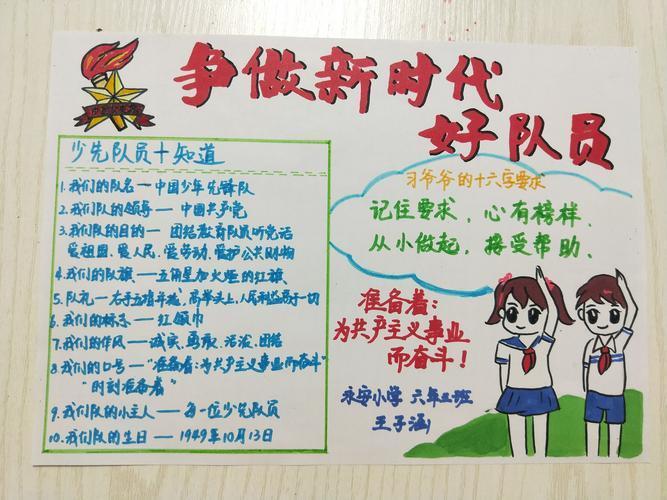 争做新时代
好队员
少先队员十知道
1.我们的队名—中国少年先锋队
2.我们队的领导—中国共产党
3.我们队的目的— 团结教育队员听党话
爱祖国、爱人民、爱劳动、爱护公共财物
4.我们的队旗—五角星加火炬的红旗、
5.队礼—右手五指并拢,高举头上,人民利益高于一切
6.我们的标志—红领巾
7.我们的作风—诚实、勇敢、活泼、团结
8.我们的口号—"准备着:为共产主义事业而奋斗"
"时刻准备着"
9.我们队的小主人—每一位少先队员
10.我们队的生日—1949年10月13日
习爷爷的十六字要求
记住要求,心有榜样,
从小做起,接受帮助、
准备着:
为共产主义事业
而奋斗!
永安小学 六年二班
王子涵